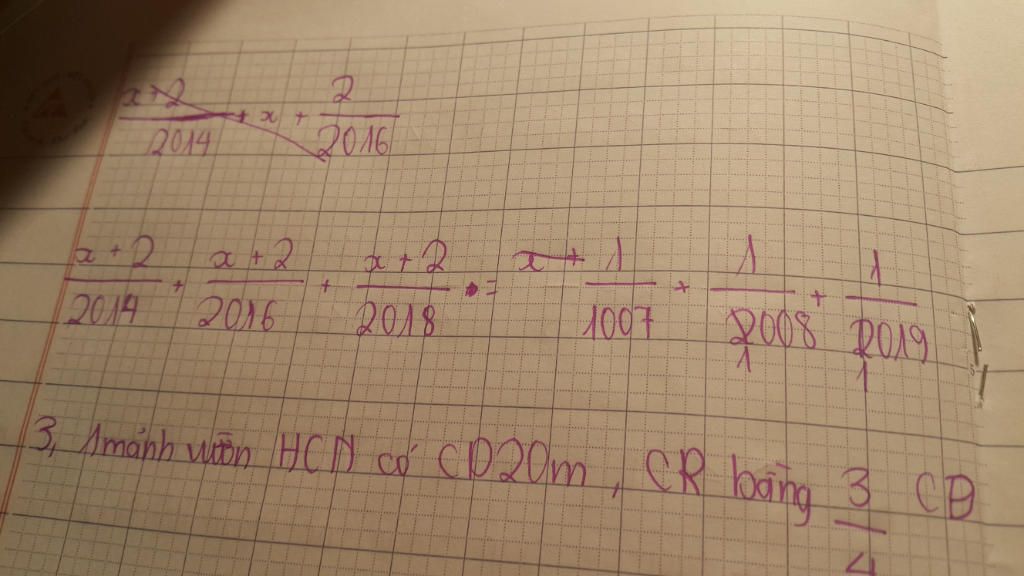 x+2/2014 + x + 2/2016
x+2/2014 + x+2/2016 + x+2/2018 = x + 1/1007 + 1/2008 + 1/2019
1 1
3, 1 mảnh vườn HCN có CD 20m, CR bằng 3/4 CD